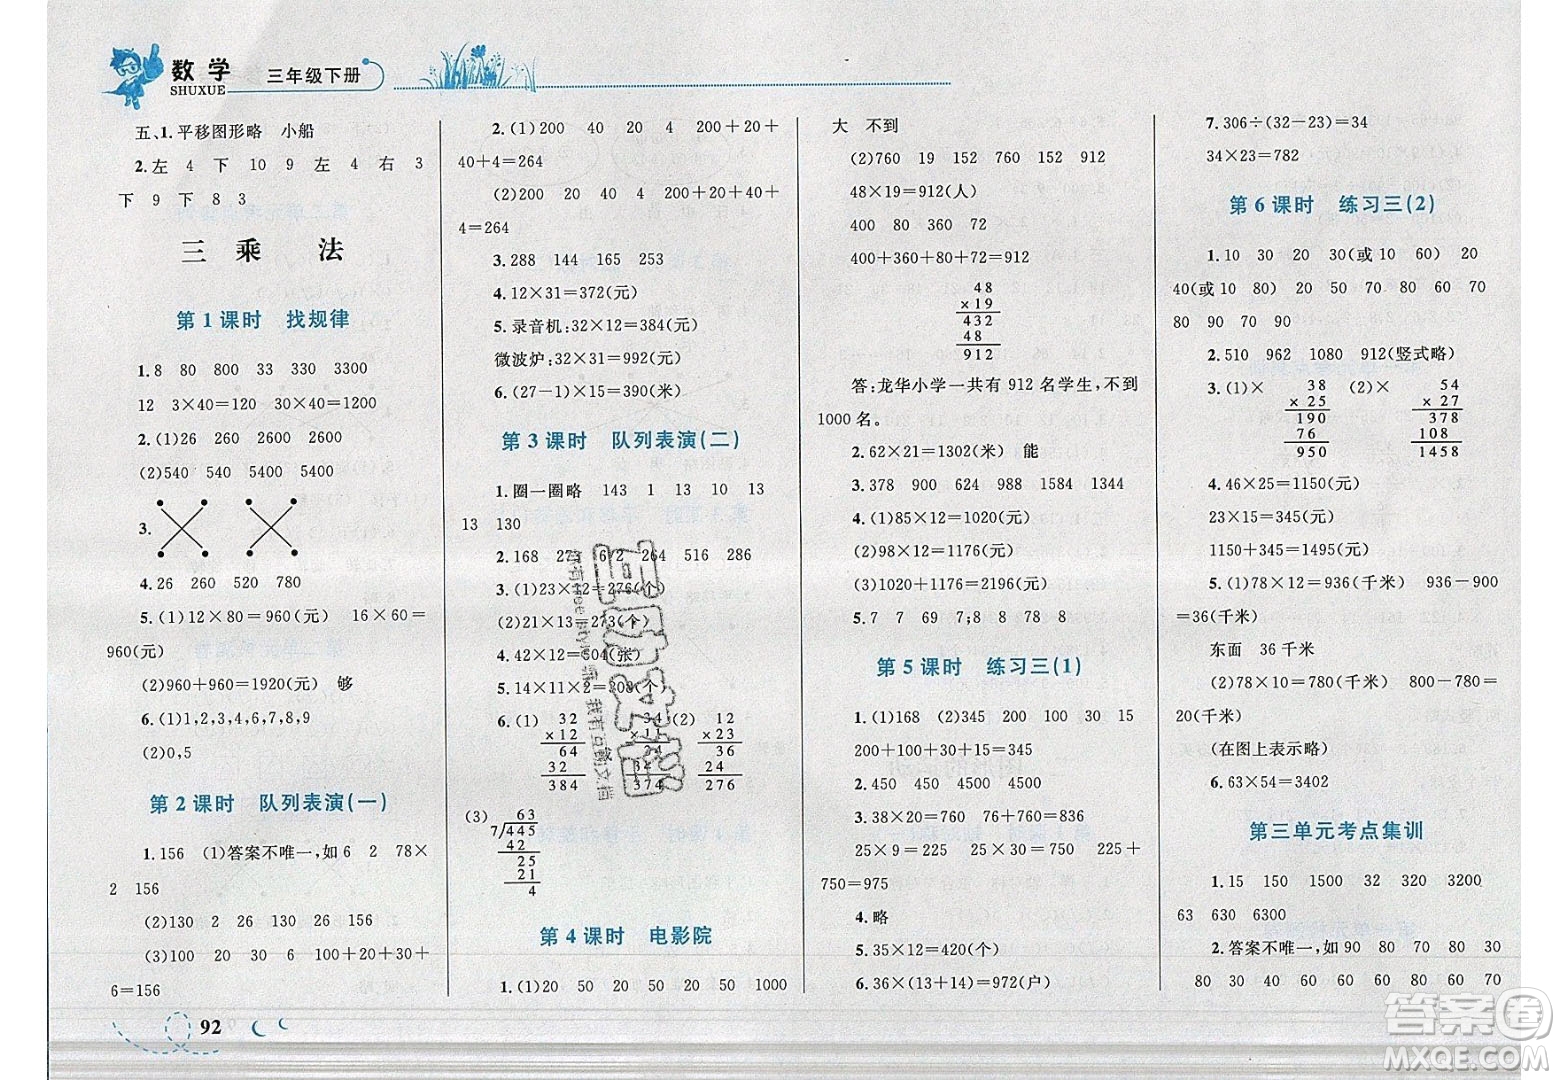 数学
SHUXUE
三年级下册
五、1.平移图形略 小船
2.左 4 下 10 9 左 4 右 3
下 9 下 8 3
三 乘 法
第1课时 找规律
1.8 80 800 33 330 3300
12 3×40=120 30×40=1200
2.(1)26 260 260 2600
(2)540 540 5400 5400
3.
4.26 260 520 780
5.(1)12×80=960(元) 16×60=
960(元)
(2)960+960=1920(元) 够
6.(1)1,2,3,4,6,7,8,9
(2)0,5
第2课时 队列表演(一)
1.156 (1)答案不唯一,如6 2 78×
2 156
(2)130 2 26 130 26 156
(3)100 20 30 6 100+20+30+
6=156
2.(1)200 40 20 4 200+20+
40+4=264
(2)200 20 40 4 200+20+40+
4=264
3.288 144 165 253
4.12×31=372(元)
5.录音机:32×12=384(元)
微波炉:32×31=992(元)
6.(27-1)×15=390(米)
第3课时 队列表演(二)
1.圈一圈略 143 1 13 10 13
13 130
2.168 672 264 516 286
3.(1)23×12=276(个)
(2)21×13=273(个)
4.42×12=504(张)
5.14×22=308(个)
6.(1) 32 34 (2) 12
×12 ×11 ×23
64 34 36
32 34 24
384 374 276
(3) 63
7 445
42
25
21
4
第4课时 电影院
1.(1)20 50 20 50 20 50 1000
大 不到
(2)760 19 152 760 152 912
48×19=912(人)
400 80 360 72
400+360+80+72=912
48
×19
432
48
912
答:龙华小学一共有912名学生,不到
1000名。
2.62×21=1302(米) 能
3.378 900 624 988 1584 1344
4.(1)85×12=1020(元)
(2)98×12=1176(元)
(3)1020+1176=2196(元)
5.7 7 69 7;8 8 78 8
第5课时 练习三(1)
1.(1)168 (2)345 200 100 30 15
200+100+30+15=345
2.450 450 4500 4500
3.38×20=760 18×24=432
25×9=225 25×30=750 225+
750=975
4.略
5.35×12=420(个)
6.36×(13+14)=972(户)
7.306÷(32-23)=34
34×23=782
第6课时 练习三(2)
1.10 30 20 30(或10 60) 20
40(或10 80) 20 50 70 80 60 70
80 90 70 90
2.510 962 1080 912(竖式略)
3.(1)× 38 (2)× 54
×25 ×27
190 378
76 108
950 1458
4.46×25=1150(元)
23×15=345(元)
1150+345=1495(元)
5.(1)78×12=936(千米) 936-900
=36(千米)
东面 36千米
(2)78×10=780(千米) 800-780=
20(千米)
(在图上表示略)
6.63×54=3402
第三单元考点集训
1.15 150 1500 32 320 3200
63 630 6300
2.答案不唯一,如90 80 70 80 30
80 30 40 50 60 40 60 80 60 70
92
答案圈
MXQE.COM